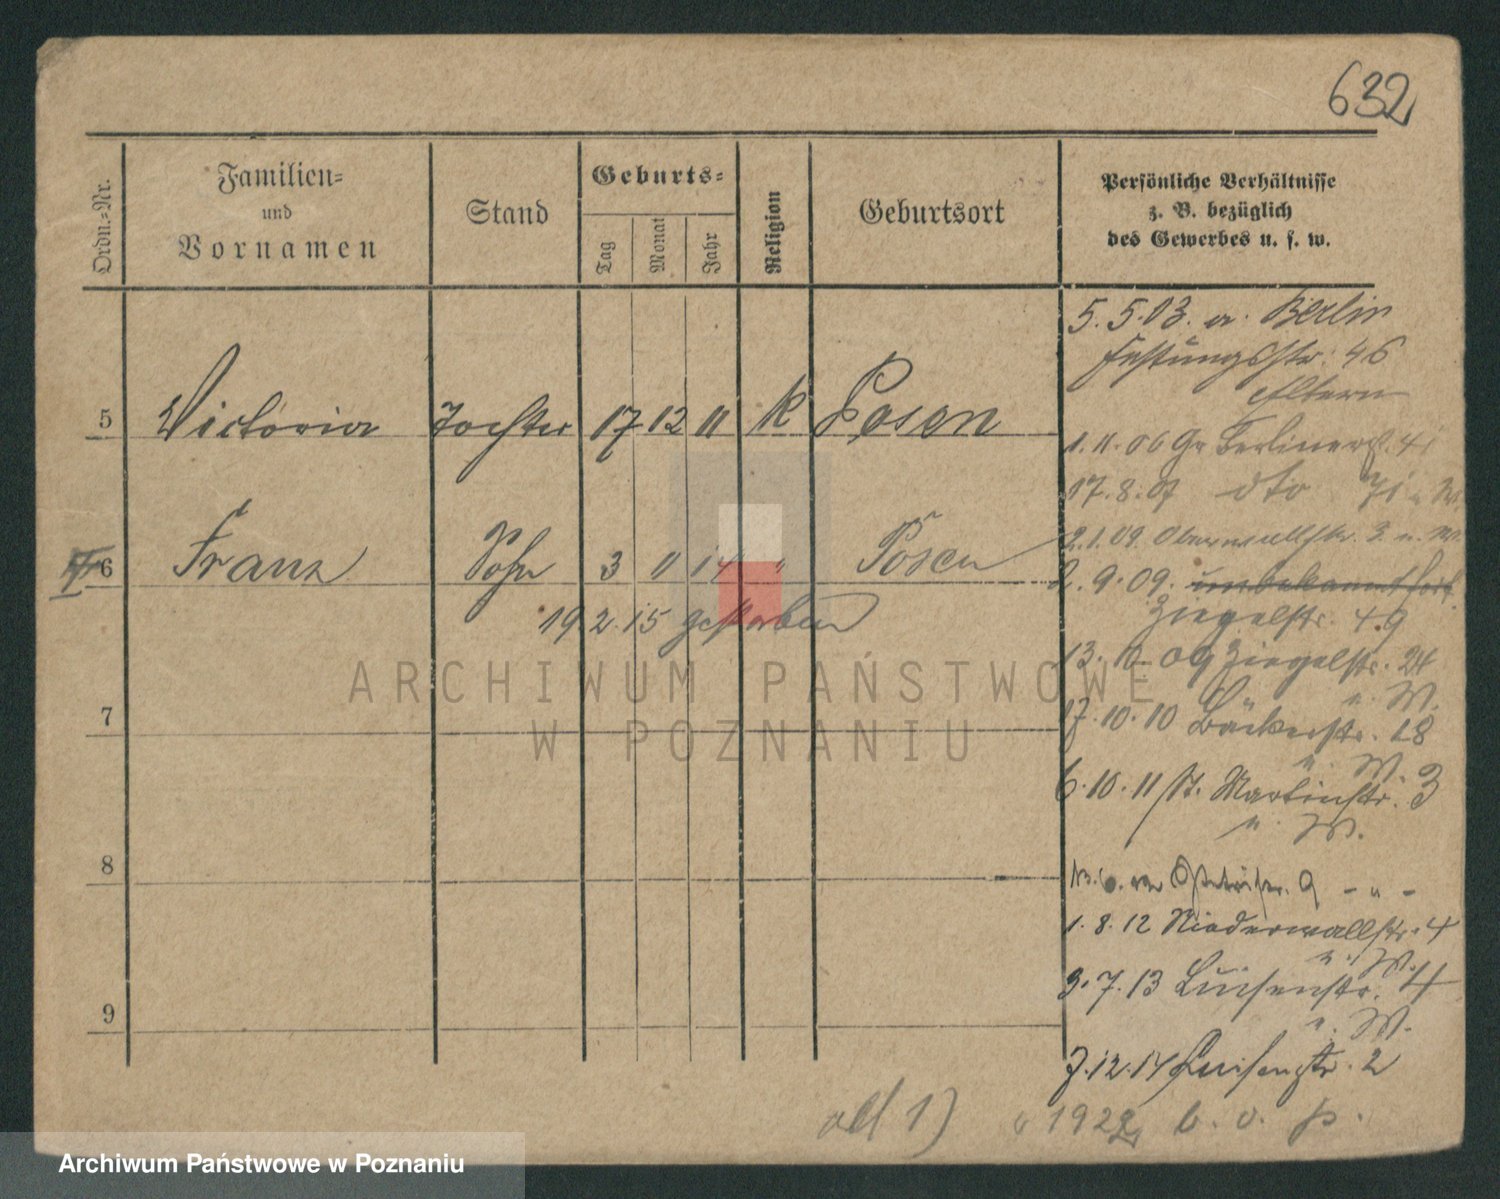 632
Ordn.-Nr.
Familien-
und
Vornamen
Stand
Geburts-
Tag
Monat
Jahr
Religion
Geburtsort
Persönliche Verhältnisse
z. B. bezüglich
des Gewerbes u. s. w.
5 Victoria Tochter 17 12 11 K Posen
6 Franz Sohn 3 " 14 " Posen
19 2 15 gestorben
7
8
9
5. 5. 03. a. Berlin
Festungsstr. 46
Eltern
1. 11. 06 Gr Berlinerstr. 4
17. 8. 07 dto
2. 1. 09. Oberwallstr. 3 u. W.
2. 9. 09. unbekannt fort
Ziegelstr. 49
13. 10. 09 Ziegelstr. 24
u. W.
17. 10. 10 Bäckerstr. 18
u. W.
6. 10. 11 St. Martinstr. 3
u. W.
9 - " -
1. 8. 12 Niederwallstr. 4
u. W.
3. 7. 13 Luisenstr. 4
u. W.
7. 12. 14 Luisenstr. 2
1922 b. o. p.
ad 1)
ARCHIWUM PAŃSTWOWE
W POZNANIU
Archiwum Państwowe w Poznaniu